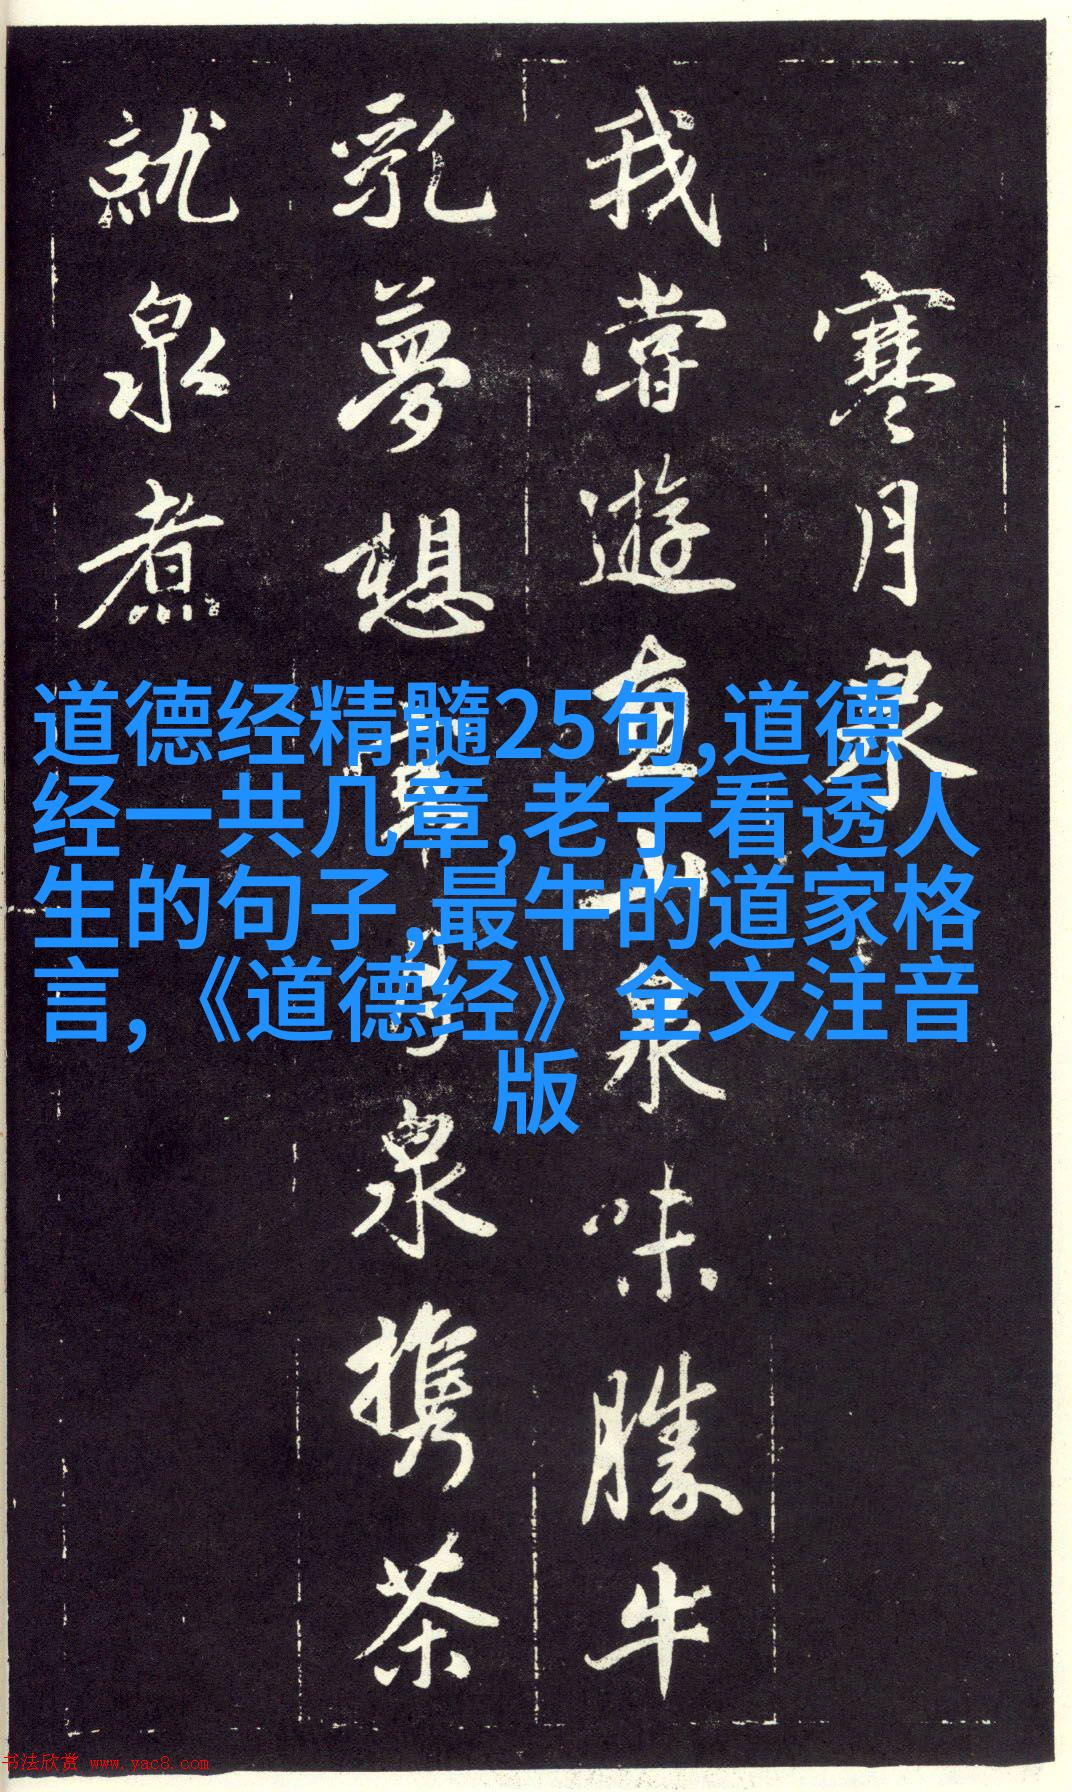 寒月泉
我尝遊惠山泉味勝牛
乳夢想寒月泉攜茶
就泉煮
道德经精髓25句,道德
经一共几章,老子看透人
生的句子,最牛的道家格
言,《道德经》全文注音
版
书法欣赏 www.yac8.com